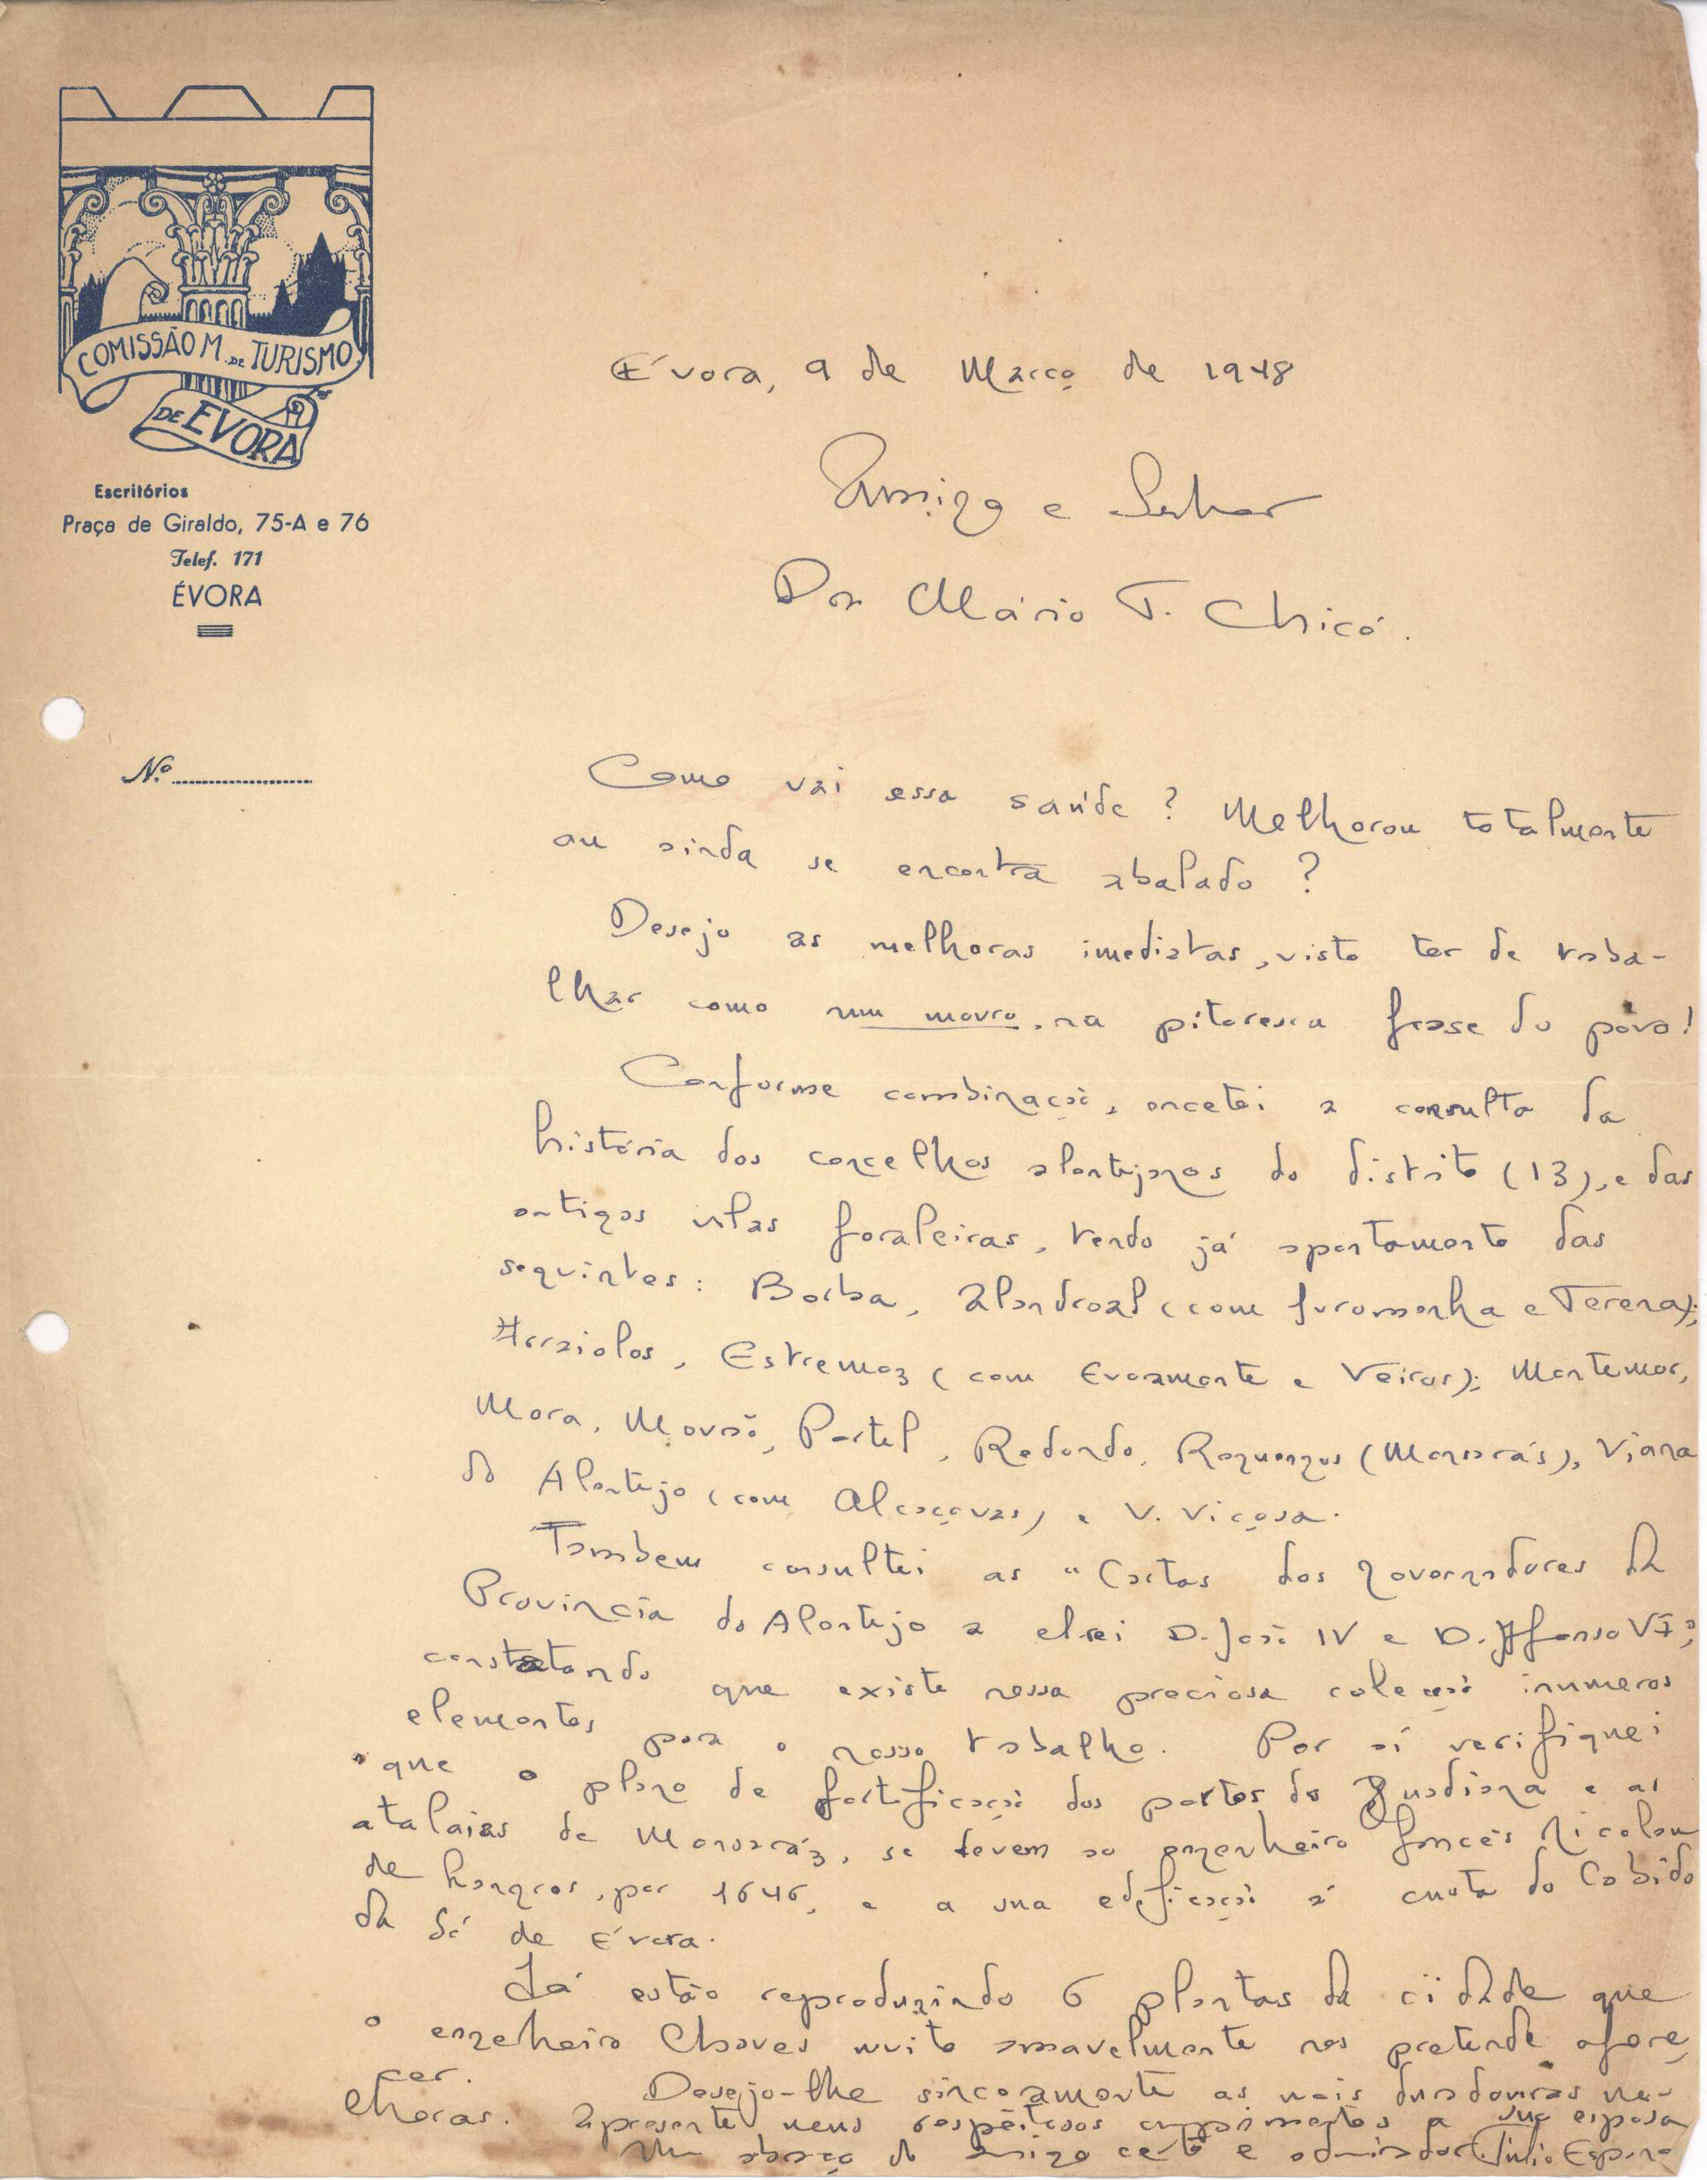 COMISSÃO M. DE TURISMO
DE EVORA
Escritórios
Praça de Giraldo, 75-A e 76
Telef. 171
ÉVORA
Évora, 9 de Março de 1948
Amigo e Senhor
Dor Mário T. Chicó.
Nº
Como vai essa saúde? Melhorou totalmente
ou ainda se encontra abalado?
Desejo as melhoras imediatas, visto ter de traba-
lhar como um mouro, na pitoresca frase do povo!
Conforme combinação, encetei a consulta da
história dos concelhos alentejanos do distrito (13), e das
antigas vilas foraleiras, tendo já apontamento das
seguintes: Borba, Alandroal (com Juromenha e Terena);
Arraiolos, Estremoz (com Evoramonte e Veiros); Montemor,
Mora, Mourão, Portel, Redondo, Reguengos (Monsarás), Viana
do Alentejo (com Alcaçovas) e V. Viçosa.
Tambem consultei as "Cartas dos governadores da
Provincia do Alentejo a elrei D. João IV e D. Afonso VI";
constatando que existe nessa preciosa coleção inumeros
elementos para o nosso trabalho. Por aí verifiquei
que o plano de fortificação dos portos do Guadiana e as
atalaias de Monsaráz, se devem ao engenheiro francês Nicolau
de Langres, por 1646, e a sua edificação á custa do Cabido
da Sé de Évora.
Já estão reproduzindo 6 plantas da cidade que
o engenheiro Chaves muito amavelmente nos pretende ofere
cer.
Desejo-lhe sinceramente as mais duradouras me-
lhoras. Apresente meus respeitosos cumprimentos a sua esposa
Um abraço do amigo certo e admirador Túlio Espanca